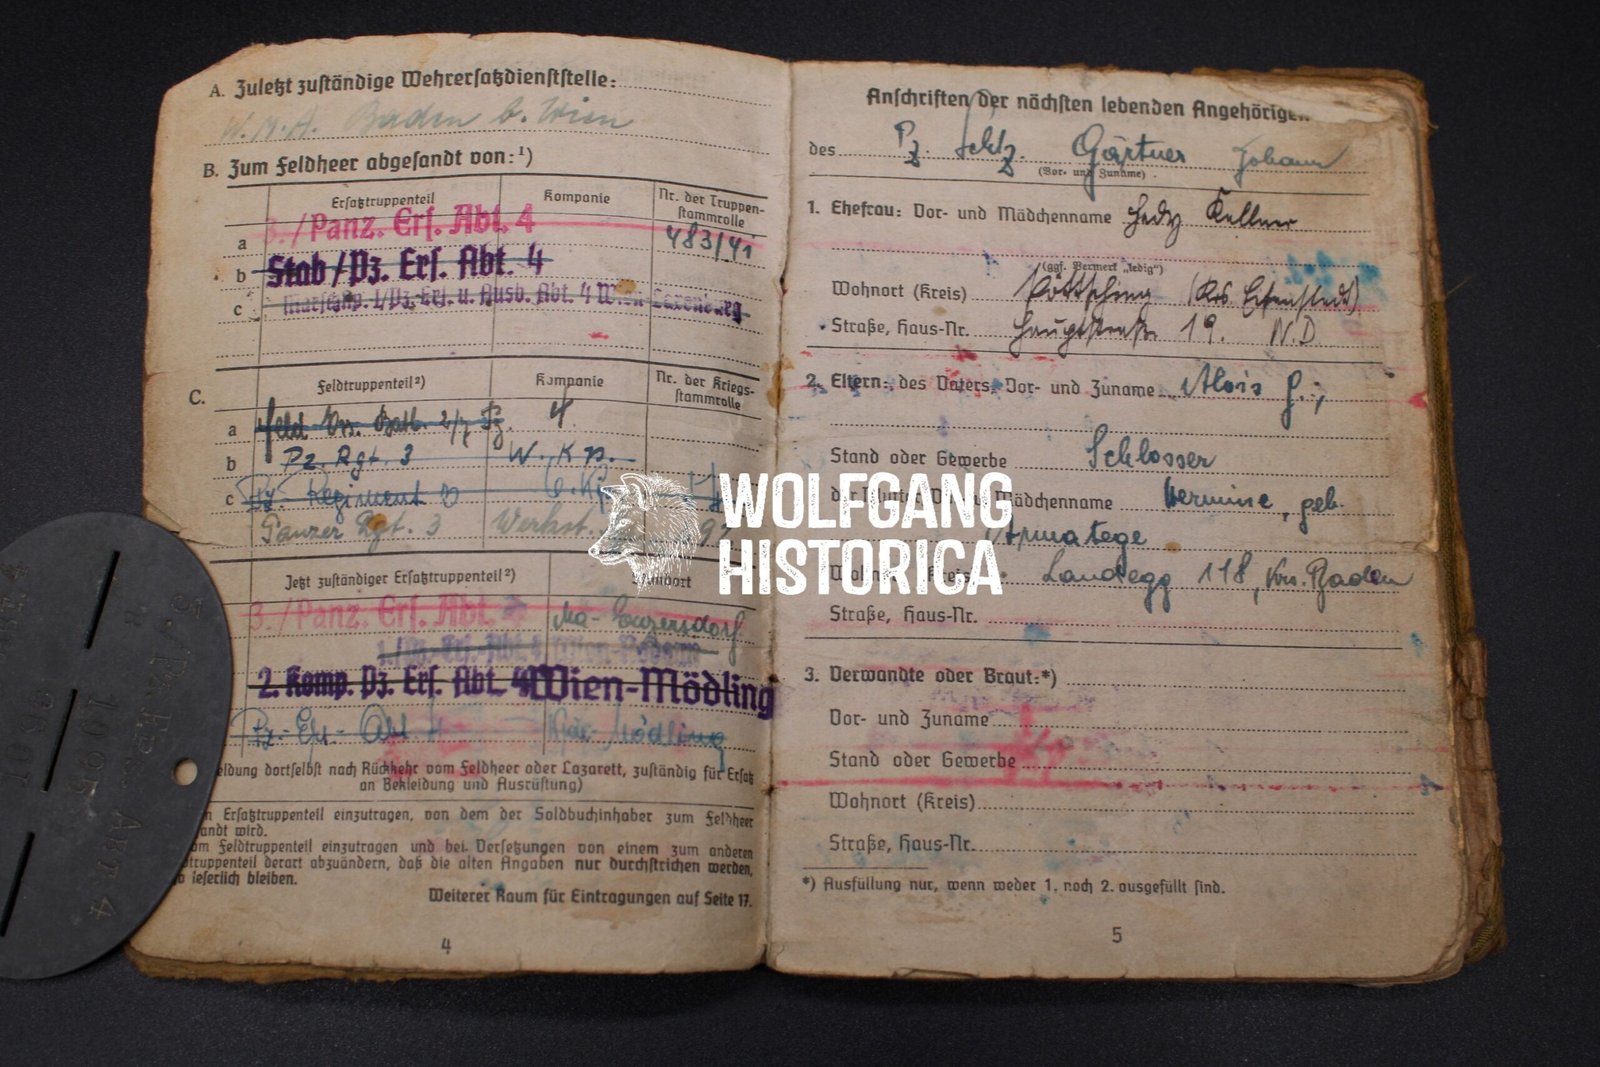 A. Zuletzt zuständige Wehrersatzdienststelle:
W.M.A. Baden b. Wien
B. Zum Feldheer abgesandt von:¹)
Ersatztruppenteil Kompanie Nr. der Truppen-
stammrolle
a 3./Panz. Ers. Abt. 4 483/41
b Stab/Pz. Ers. Abt. 4
c Marschkp. 1/Pz. Ers. u. Ausb. Abt. 4 Wien
C. Feldtruppenteil²) Kompanie Nr. der Kriegs-
stammrolle
a Feld Batl. 4
b Pz. Rgt. 3 W. Kp.
c Pz. Regiment
Panzer Rgt. 3 Werkst.
Jetzt zuständiger Ersatztruppenteil²)
3./Panz. Ers. Abt. Ma-Enzersdorf
2. Komp. Pz. Ers. Abt. 4 Wien-Mödling
Pz.-Ers.-Abt. 4 Mödling
eldung dortselbst nach Rückkehr vom Feldheer oder Lazarett, zuständig für Ersatz
an Bekleidung und Ausrüstung)
n Ersatztruppenteil einzutragen, von dem der Soldbuchinhaber zum Feldheer
andt wird.
om Feldtruppenteil einzutragen und bei Versetzungen von einem zum anderen
truppenteil derart abzuändern, daß die alten Angaben nur durchstrichen werden,
o leserlich bleiben.
Weiterer Raum für Eintragungen auf Seite 17.
4
Anschriften der nächsten lebenden Angehörigen
des Pz. Schtz. Gärtner Johann
(Vor- und Zuname)
1. Ehefrau: Vor- und Mädchenname Hedy Kellner
(ggf. Vermerk „ledig")
Wohnort (Kreis) Pöttsching (Krs. Eisenstadt)
Straße, Haus-Nr. Hauptstraße 19. N.D
2. Eltern: des Vaters, Vor- und Zuname Alois G.,
Stand oder Gewerbe Schlosser
der Mutter Mädchenname Hermine, geb.
Landegg 118, Krs. Baden
Straße, Haus-Nr.
3. Verwandte oder Braut:*)
Vor- und Zuname
Stand oder Gewerbe
Wohnort (Kreis)
Straße, Haus-Nr.
*) Ausfüllung nur, wenn weder 1. noch 2. ausgefüllt sind.
5
WOLFGANG
HISTORICA